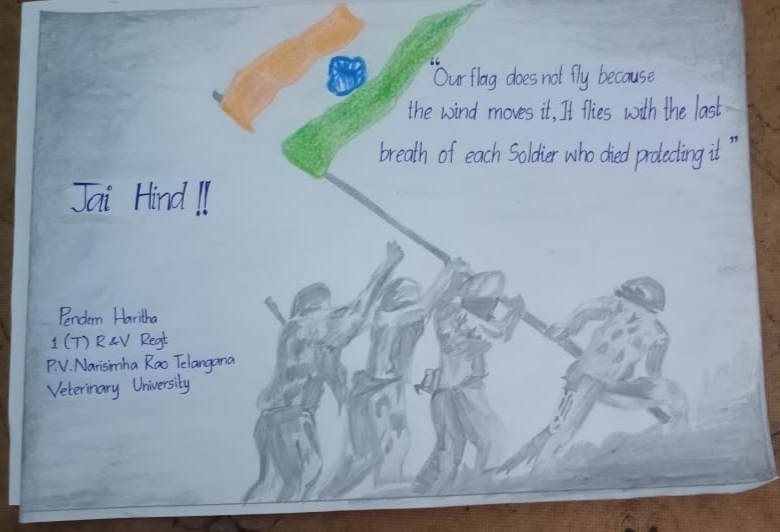 "Our flag does not fly because
the wind moves it, It flies with the last
breath of each Soldier who died protecting it"
Jai Hind !!
Pendem Haritha
1 (T) R & V Regt
P.V. Narisimha Rao Telangana
Veterinary University